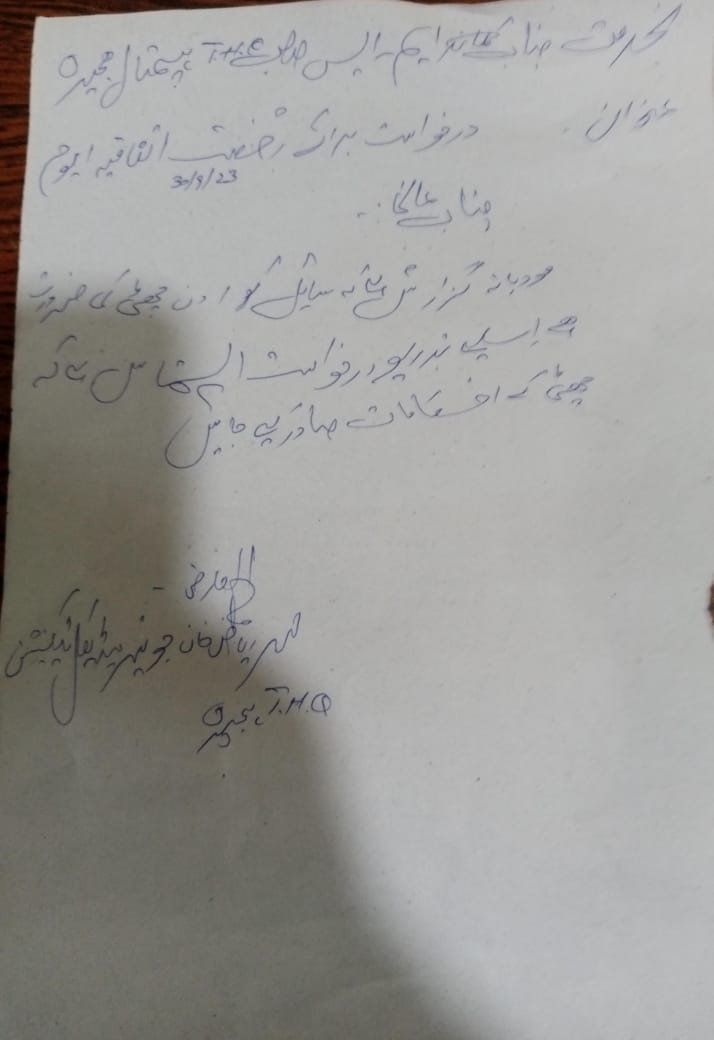 بخدمت جناب ایم۔ایس صاحب T.H.Q ہسپتال ہجیرہ
عنوان۔ درخواست برائے رخصت اتفاقیہ 1 یوم
30/9/23
جناب عالی!۔
مودبانہ گزارش ہے کہ سائل کو 1 دن چھٹی کی ضرورت
ہے اسلیے بذریعہ درخواست التماس ہے کہ
چھٹی کے احکامات صادر کیے جائیں
العارض۔
ریاض خان جونیئر میڈیکل ٹیکنیشن
T.H.Q ہجیرہ